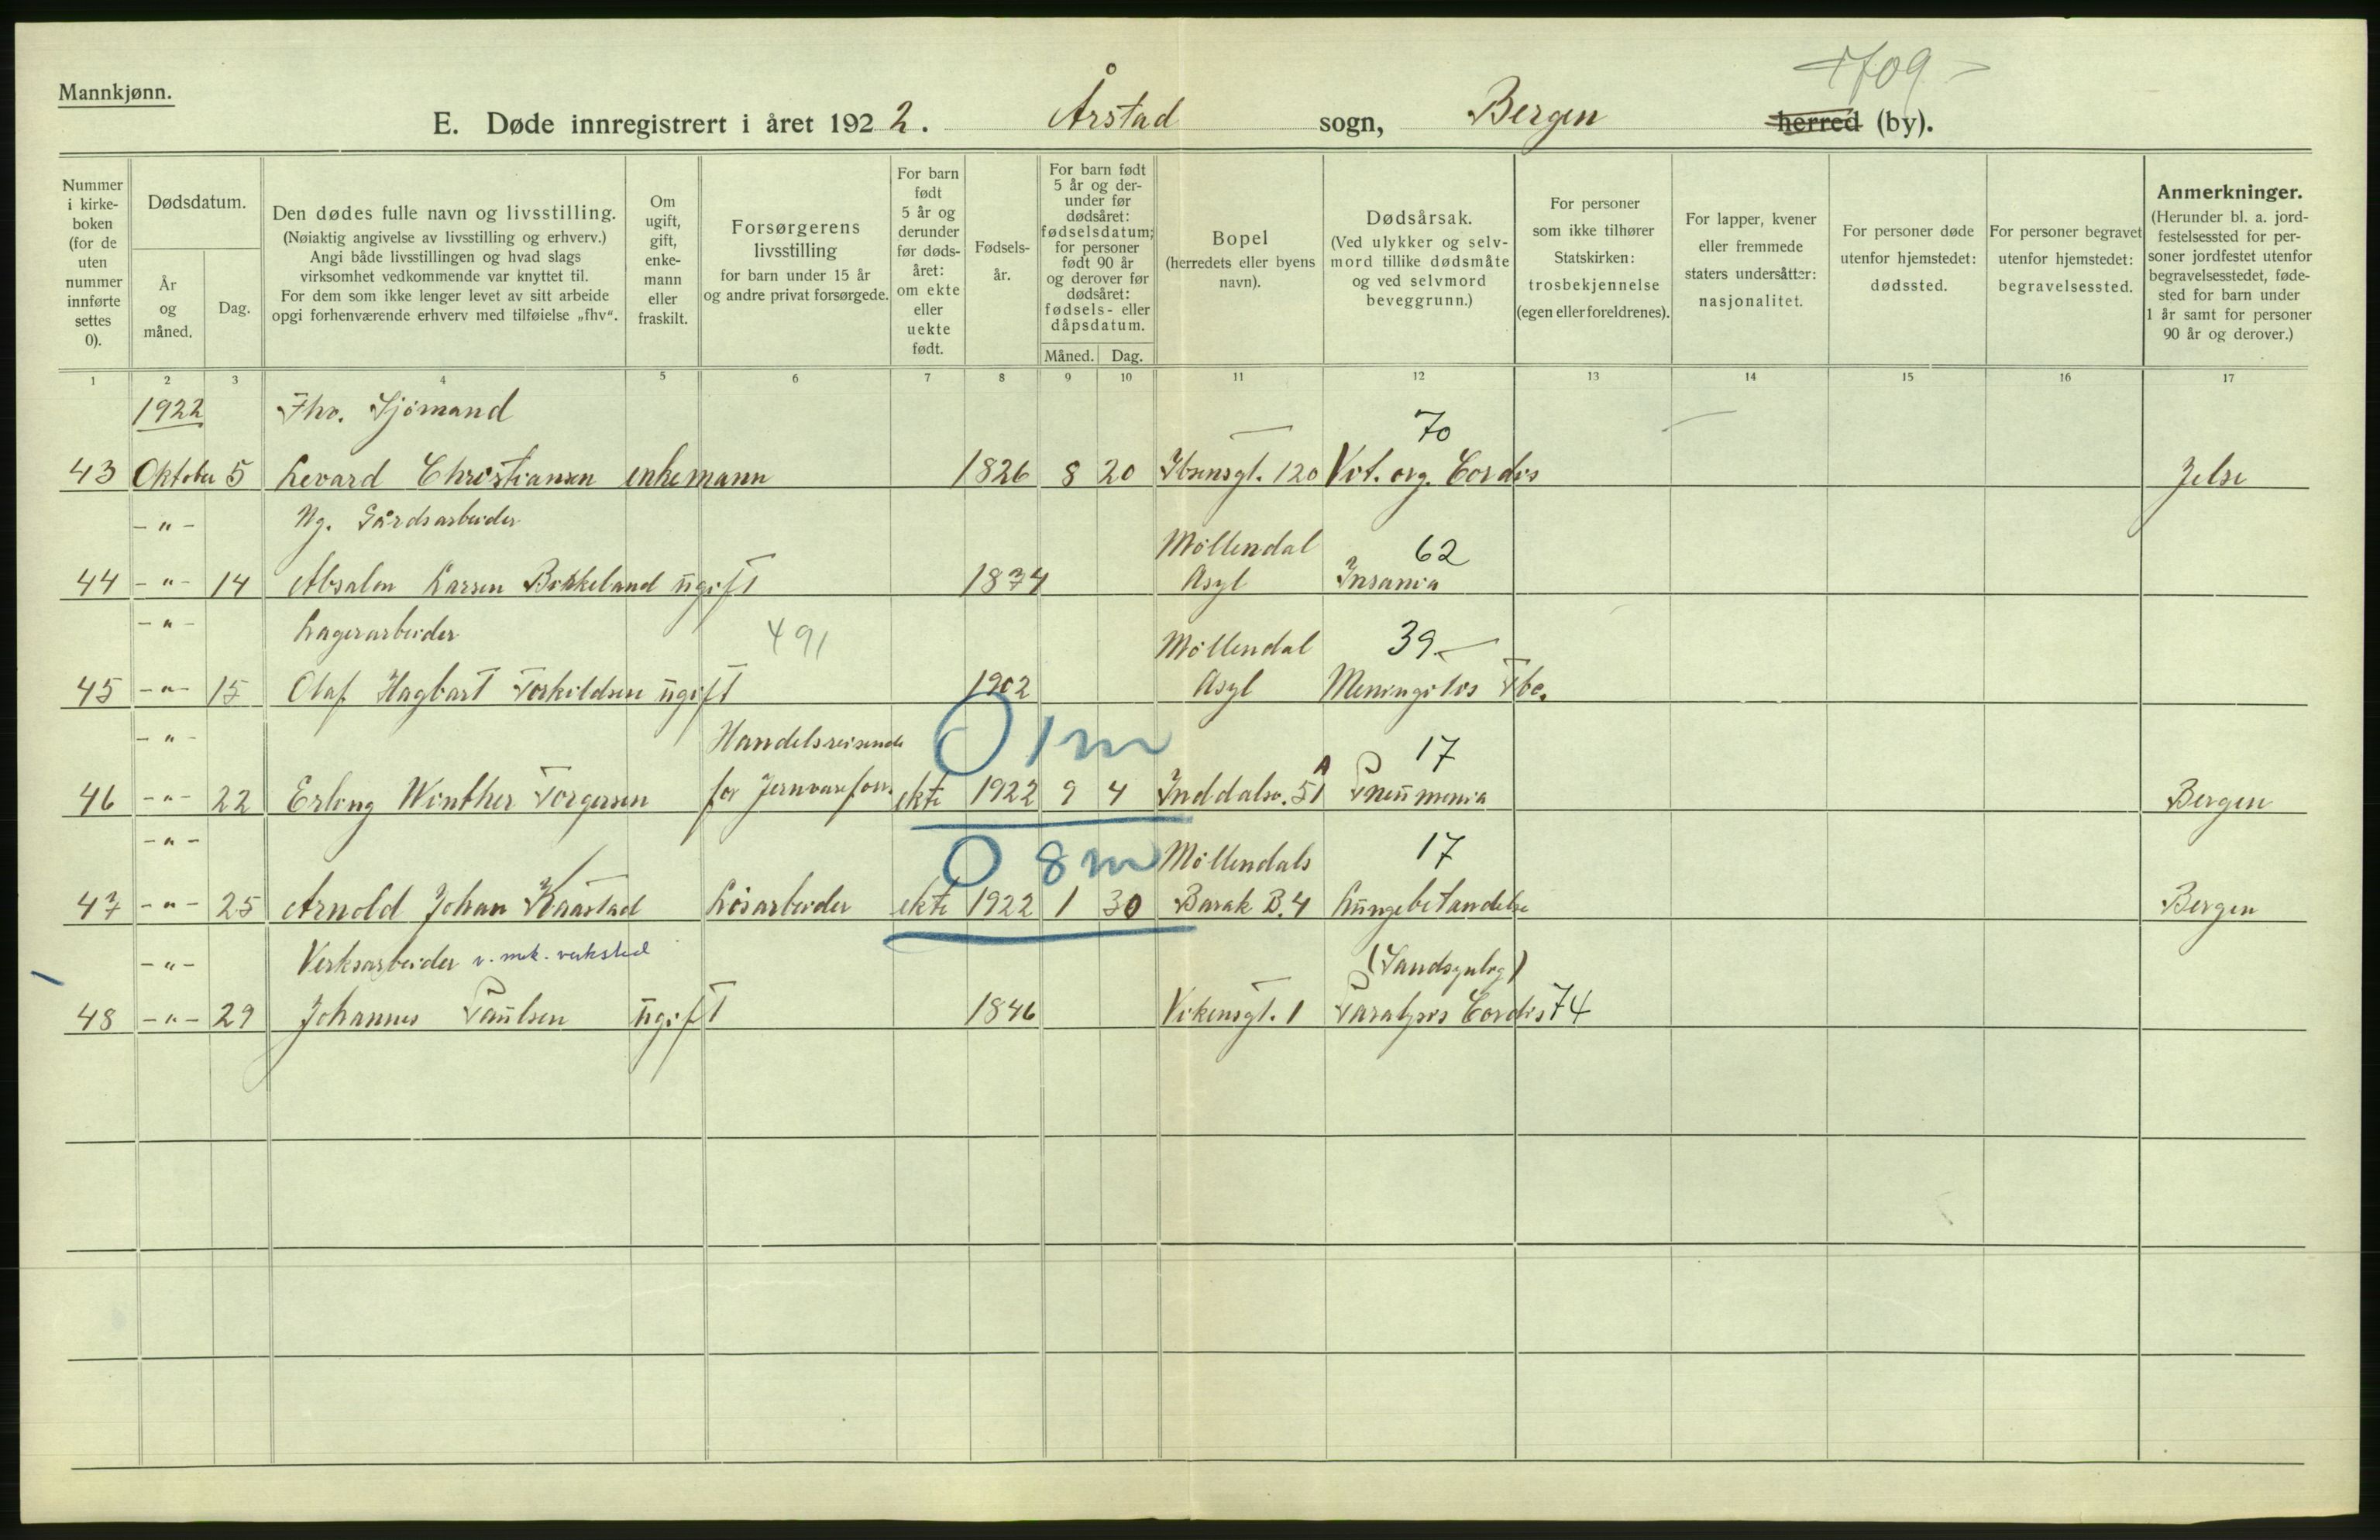 Mannkjønn.
1709
E. Døde innregistrert i året 1922. Årstad sogn, Bergen herred (by).
Nummer i kirke-boken (for de uten nummer innførte settes 0).
Dødsdatum.
År og måned.
Dag.
Den dødes fulle navn og livsstilling.
(Nøiaktig angivelse av livsstilling og erhverv.)
Angi både livsstillingen og hvad slags
virksomhet vedkommende var knyttet til.
For dem som ikke lenger levet av sitt arbeide
opgi forhenværende erhverv med tilføielse „fhv“.
Om ugift, gift, enke-mann eller fraskilt.
Forsørgerens livsstilling
for barn under 15 år
og andre privat forsørgede.
For barn født 5 år og derunder før døds-året: om ekte eller uekte født.
Fødsels-år.
For barn født 5 år og der-under før dødsåret: fødselsdatum; for personer født 90 år og derover før dødsåret: fødsels- eller dåpsdatum.
Måned.
Dag.
Bopel
(herredets eller byens navn).
Dødsårsak.
(Ved ulykker og selv-mord tillike dødsmåte og ved selvmord beveggrunn.)
For personer som ikke tilhører Statskirken: trosbekjennelse (egen eller foreldrenes).
For lapper, kvener eller fremmede staters undersåtter: nasjonalitet.
For personer døde utenfor hjemstedet: dødssted.
For personer begravet utenfor hjemstedet: begravelsessted.
Anmerkninger.
(Herunder bl. a. jord-festelsessted for per-soner jordfestet utenfor begravelsesstedet, føde-sted for barn under 1 år samt for personer 90 år og derover.)
1 2 3 4 5 6 7 8 9 10 11 12 13 14 15 16 17
1922 Fhv. Sjömand 70
43 Oktober 5 Levard Christiansen enkemann 1826 8 20 Ibsensgt. 120 Vit. org. Cordis Jelse
-"- Ng. Gårdsarbeider Möllendal 62
44 -"- 14 Absalon Larsen Birkeland ugift 1874 Asyl Insania
-"- Lagerarbeider 491 Möllendal 39
45 -"- 15 Olaf Hagbart Torkildsen ugift 1902 Asyl Meningitis Tbc.
-"- Handelsreisende 0 1 m 17
46 -"- 22 Erling Winther Torgersen for Jernvareforr. ekte 1922 9 4 Inddalsv. 51 A Pneumonia Bergen
-"- 0 8 m Möllendals 17
47 -"- 25 Arnold Johan Kaarstad Løsarbeider ekte 1922 1 30 Barak B. 4 Lungebetændelse Bergen
-"- Verksarbeider v. mek. verksted (Sandsynlig)
48 -"- 29 Johannes Paulsen ugift 1846 Vikensgt. 1 Paralysis Cordis 74